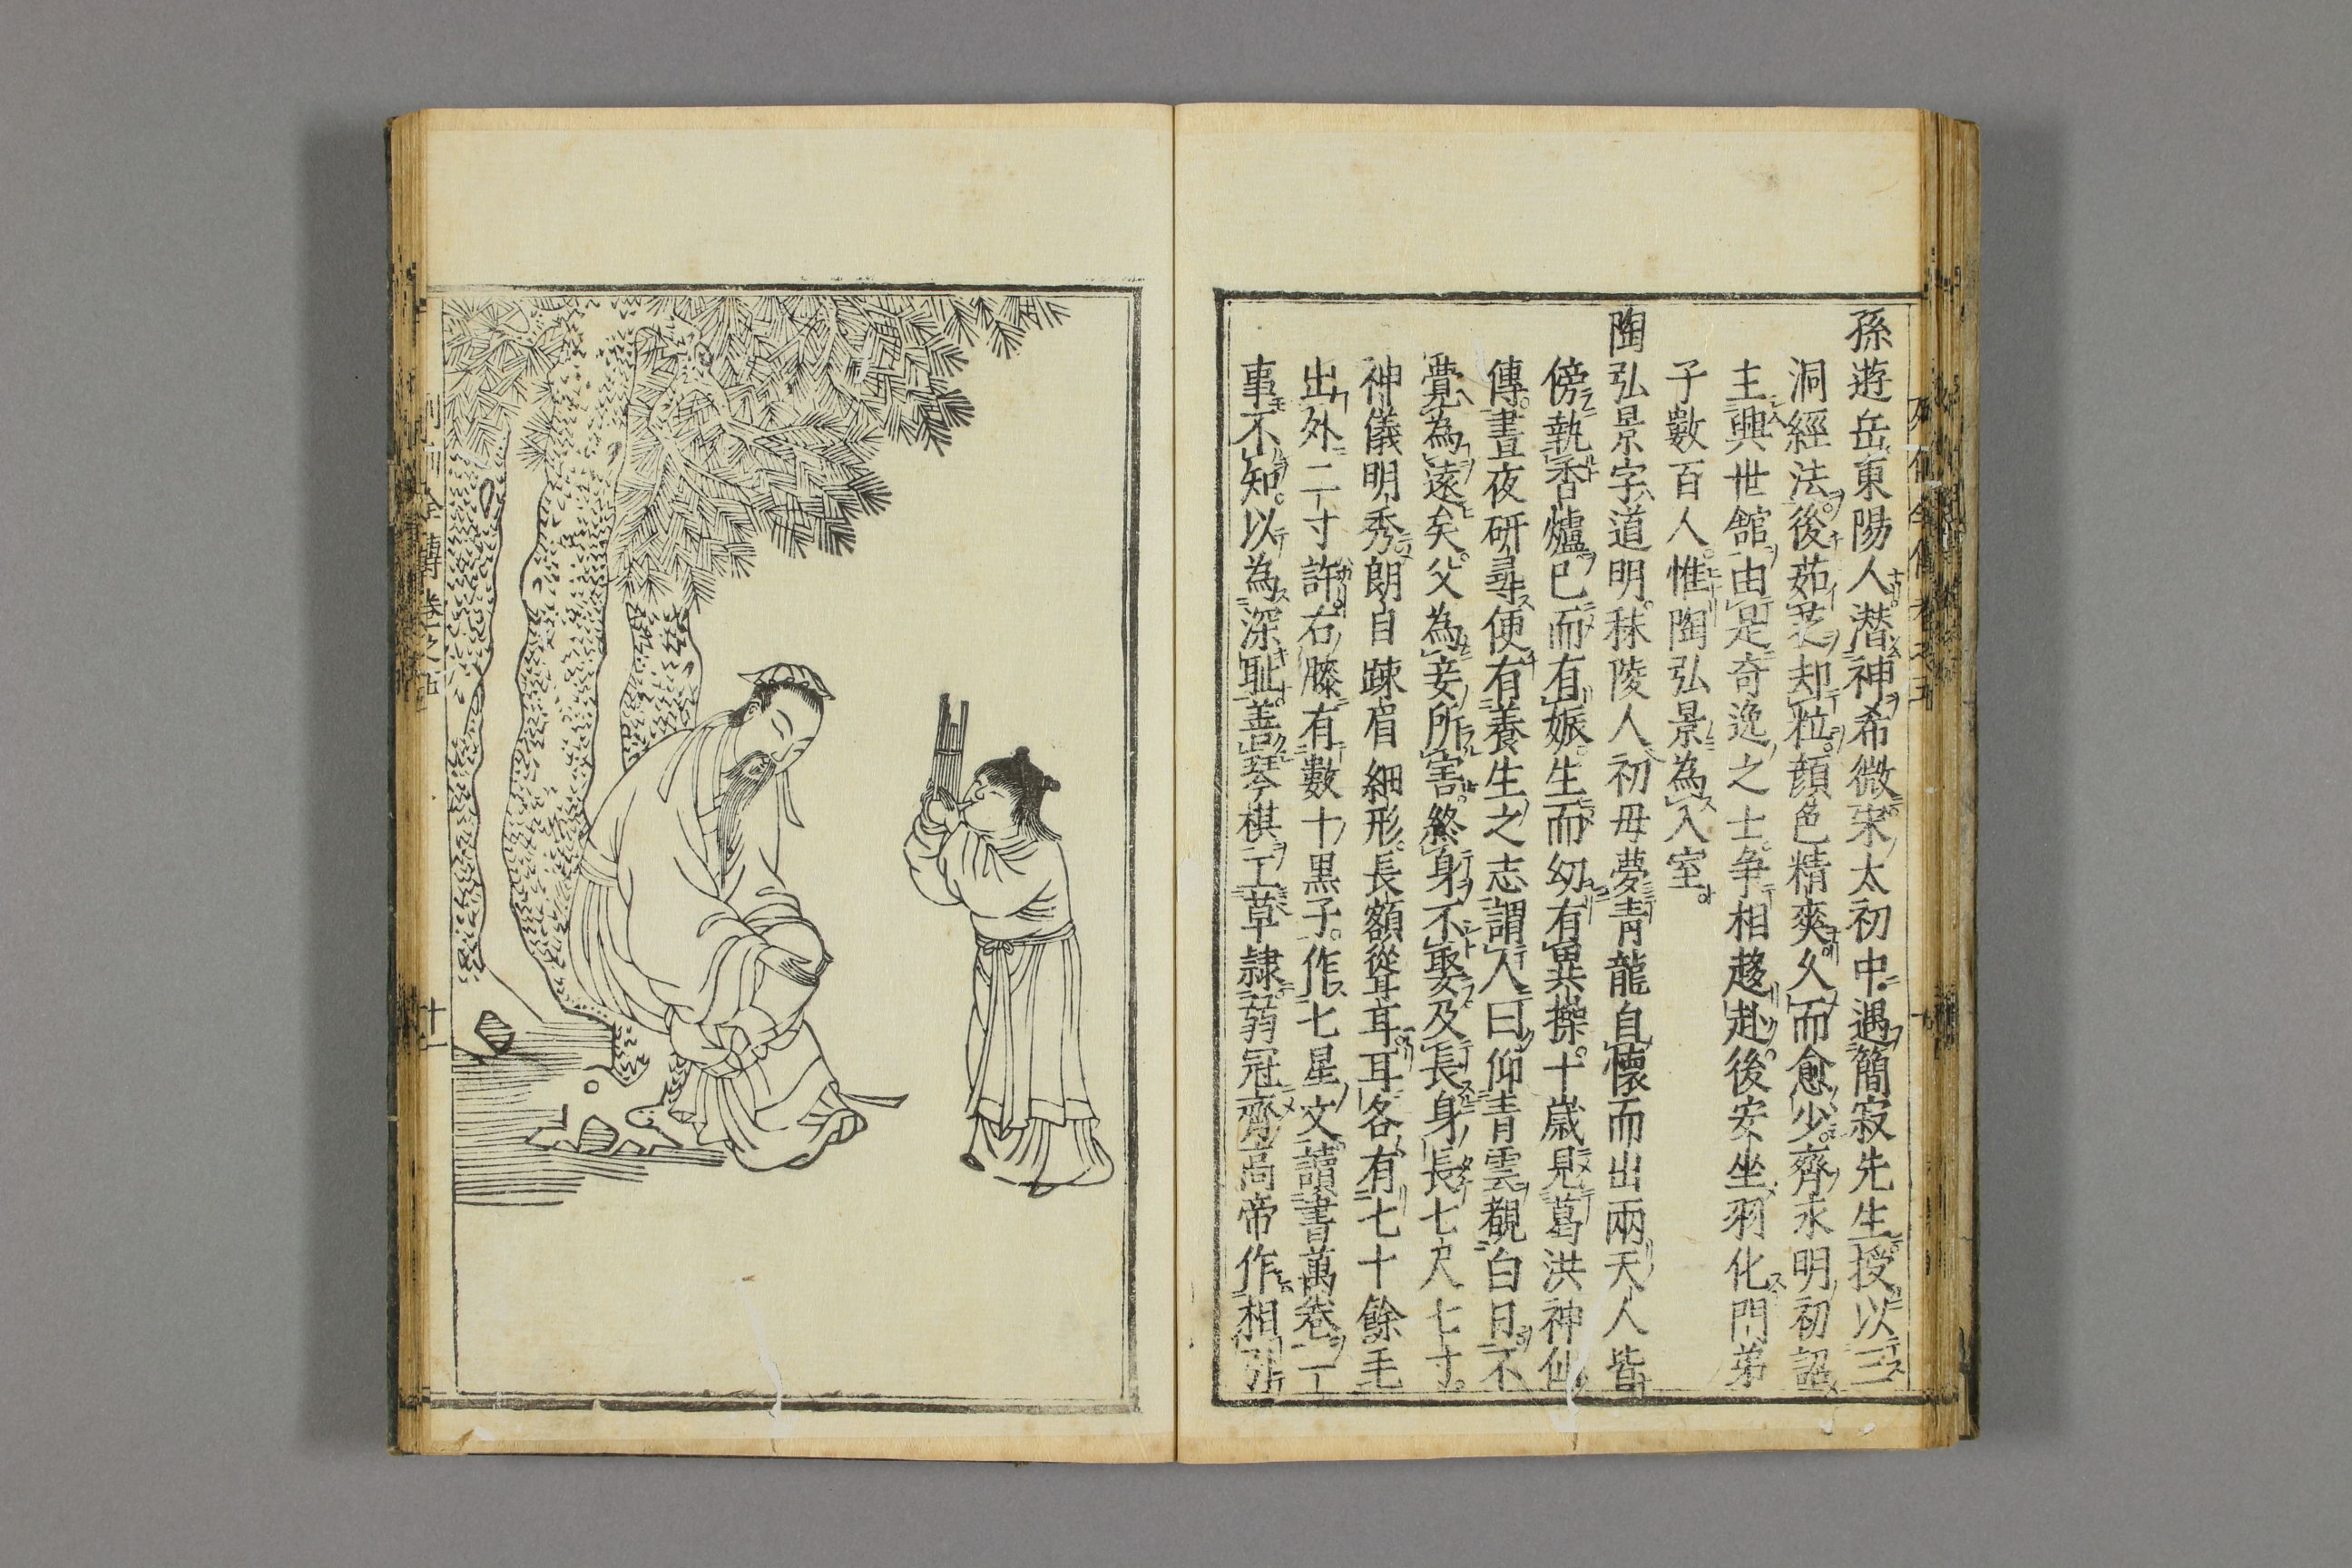 孫遊岳東陽人潜神希微宋太初中遇簡寂先生授以三
洞經法後茹芝却粒顔色精爽久而愈少齊永明初詔
主興世館由是奇逸之士争相趍赴後安坐羽化門弟
子數百人惟陶弘景為入室
陶弘景字道明秣陵人初母夢青龍自懷而出兩天人皆
傍執香爐已而有娠生而幼有異操十歳見葛洪神仙
傳晝夜研尋便有養生之志謂人曰仰青雲覩白日不
覺為遠矣父為妾所害終身不娶及長身長七尺七寸
神儀明秀朗自疎眉細形長額聳耳耳各有七十餘毛
出外二寸許右膝有數十黒子作七星文讀書萬巻一
事不知以為深耻善琴棋工草隷弱冠齊高帝作相引
列仙全傳 巻之五
十一